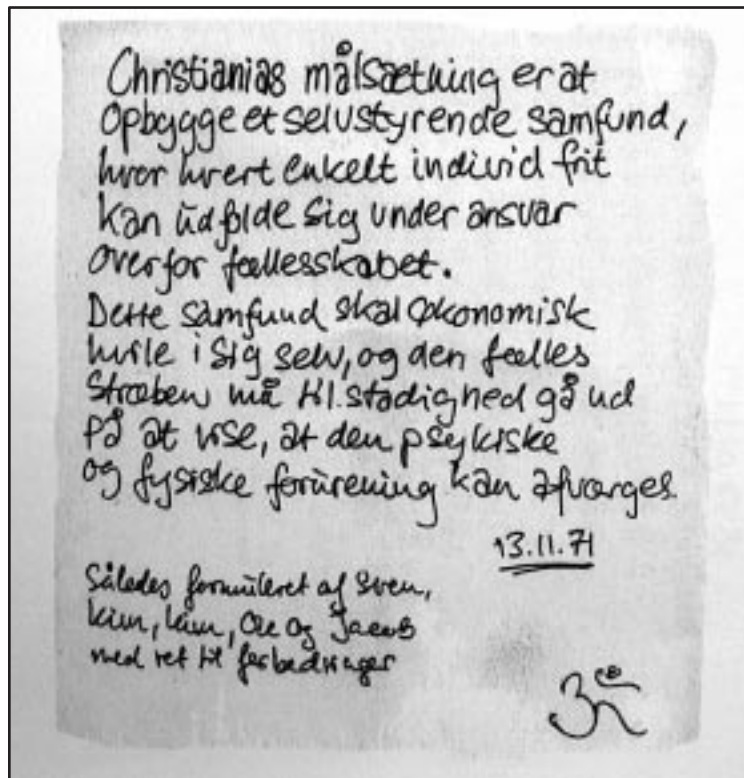 Christianias målsætning er at
opbygge et selvstyrende samfund,
hvor hvert enkelt individ frit
kan udfolde sig under ansvar
overfor fællesskabet.
Dette samfund skal økonomisk
hvile i sig selv, og den fælles
stræben må til stadighed gå ud
på at vise, at den psykiske
og fysiske forurening kan afværges
13.11.71
Således formuleret af Sven,
Kim, Kim, Ole og Jacob
med ret til forbedringer